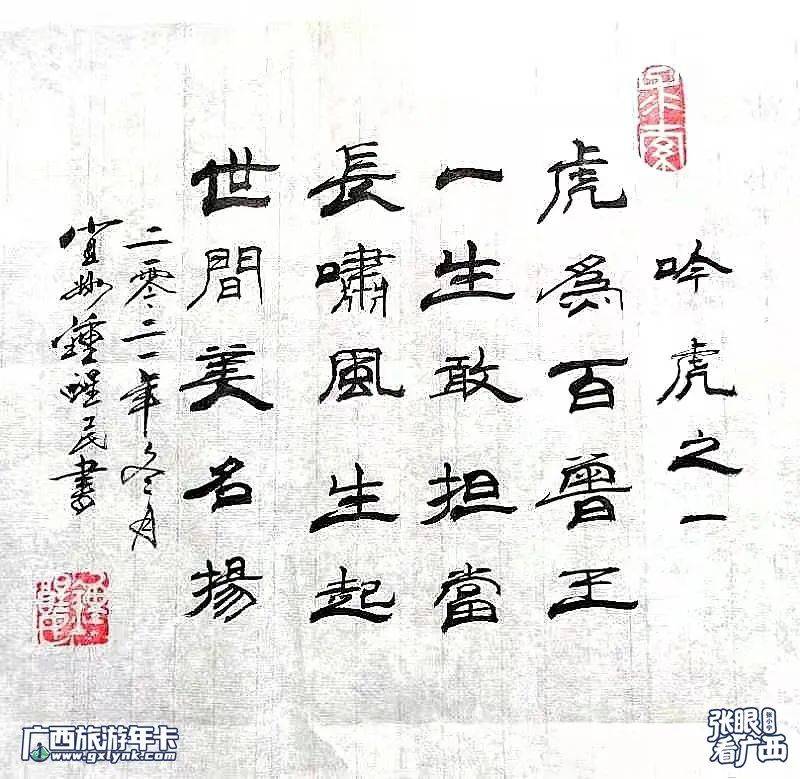 求索
吟虎之一
虎為百兽王
一生敢担當
長嘯風生起
世間美名揚
二零二一年冬月
鍾醒民書
广西旅游年卡
www.gxlynk.com
张眼
看广西